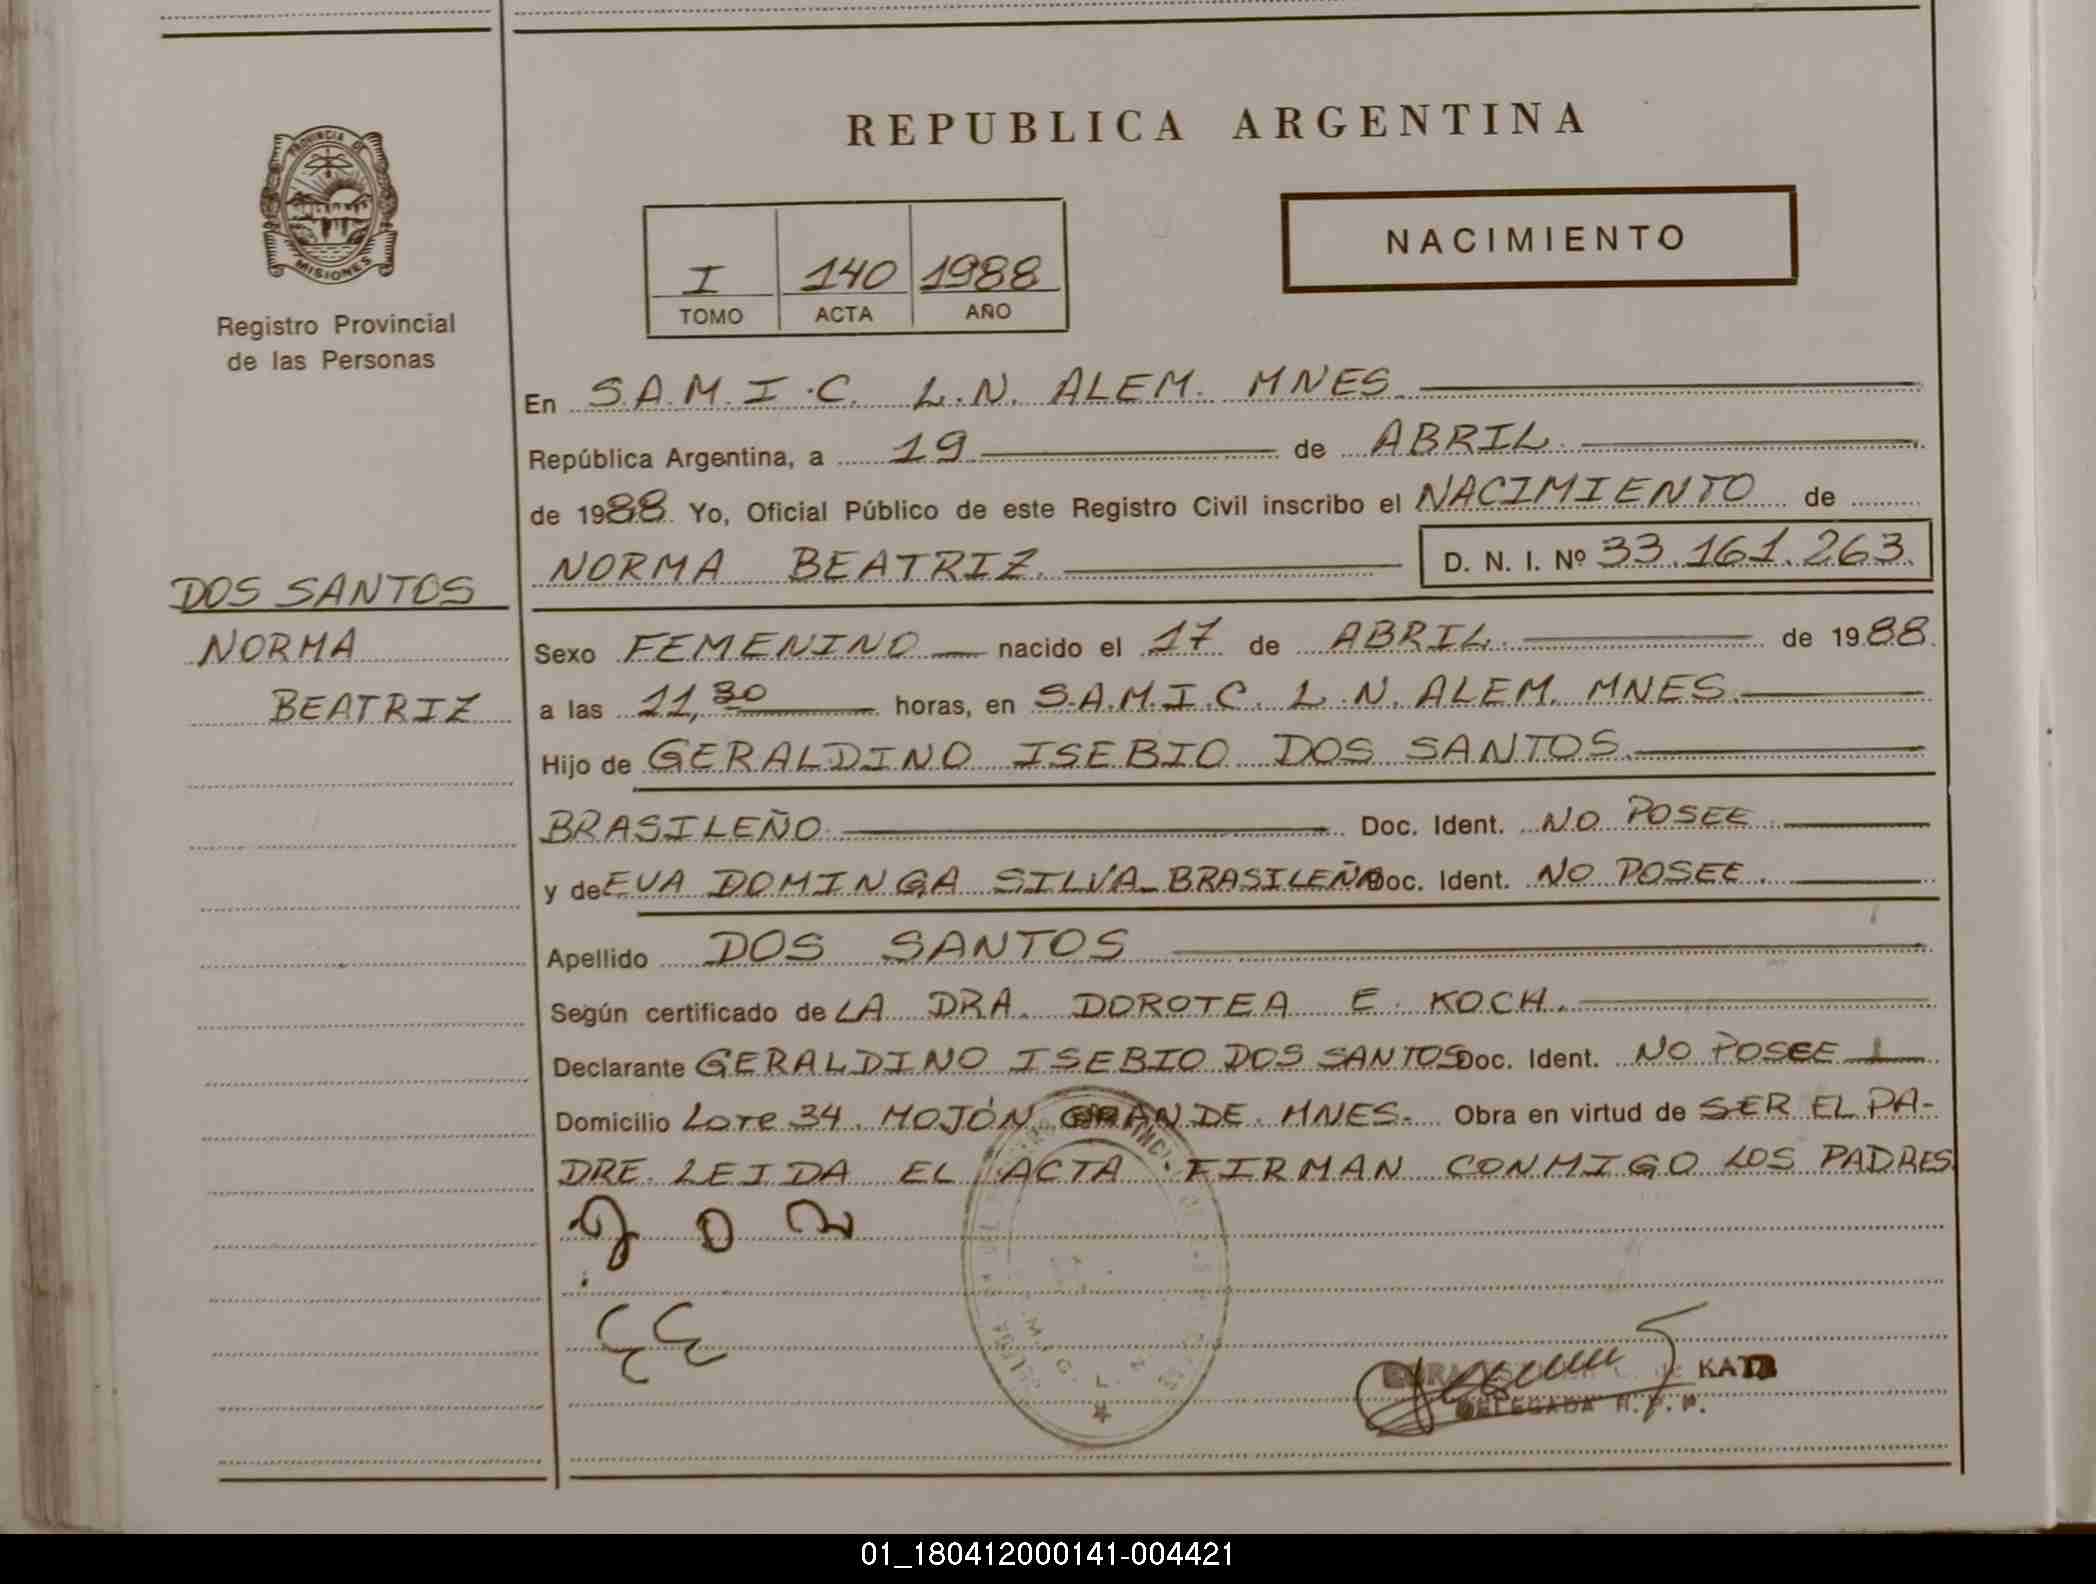 PROVINCIA DE
MISIONES
Registro Provincial
de las Personas
REPUBLICA ARGENTINA
NACIMIENTO
I 140 1988
TOMO ACTA AÑO
En S.A.M.I.C. L.N. ALEM. MNES.
República Argentina, a 19 de ABRIL
de 1988. Yo, Oficial Público de este Registro Civil inscribo el NACIMIENTO de
NORMA BEATRIZ. D. N. I. Nº 33.161.263.
DOS SANTOS
NORMA
BEATRIZ
Sexo FEMENINO nacido el 17 de ABRIL. de 1988.
a las 11,30 horas, en S.A.M.I.C. L.N. ALEM. MNES.
Hijo de GERALDINO ISEBIO DOS SANTOS.
BRASILEÑO. Doc. Ident. NO POSEE.
y de EVA DOMINGA SILVA BRASILEÑA Doc. Ident. NO POSEE.
Apellido DOS SANTOS
Según certificado de LA DRA. DOROTEA E. KOCH.
Declarante GERALDINO ISEBIO DOS SANTOS Doc. Ident. NO POSEE
Domicilio Lote 34. MOJÓN GRANDE. MNES. Obra en virtud de SER EL PA-
DRE. LEIDA EL ACTA FIRMAN CONMIGO LOS PADRES.
KATZ
DELEGADA R. P. P.
01_180412000141-004421